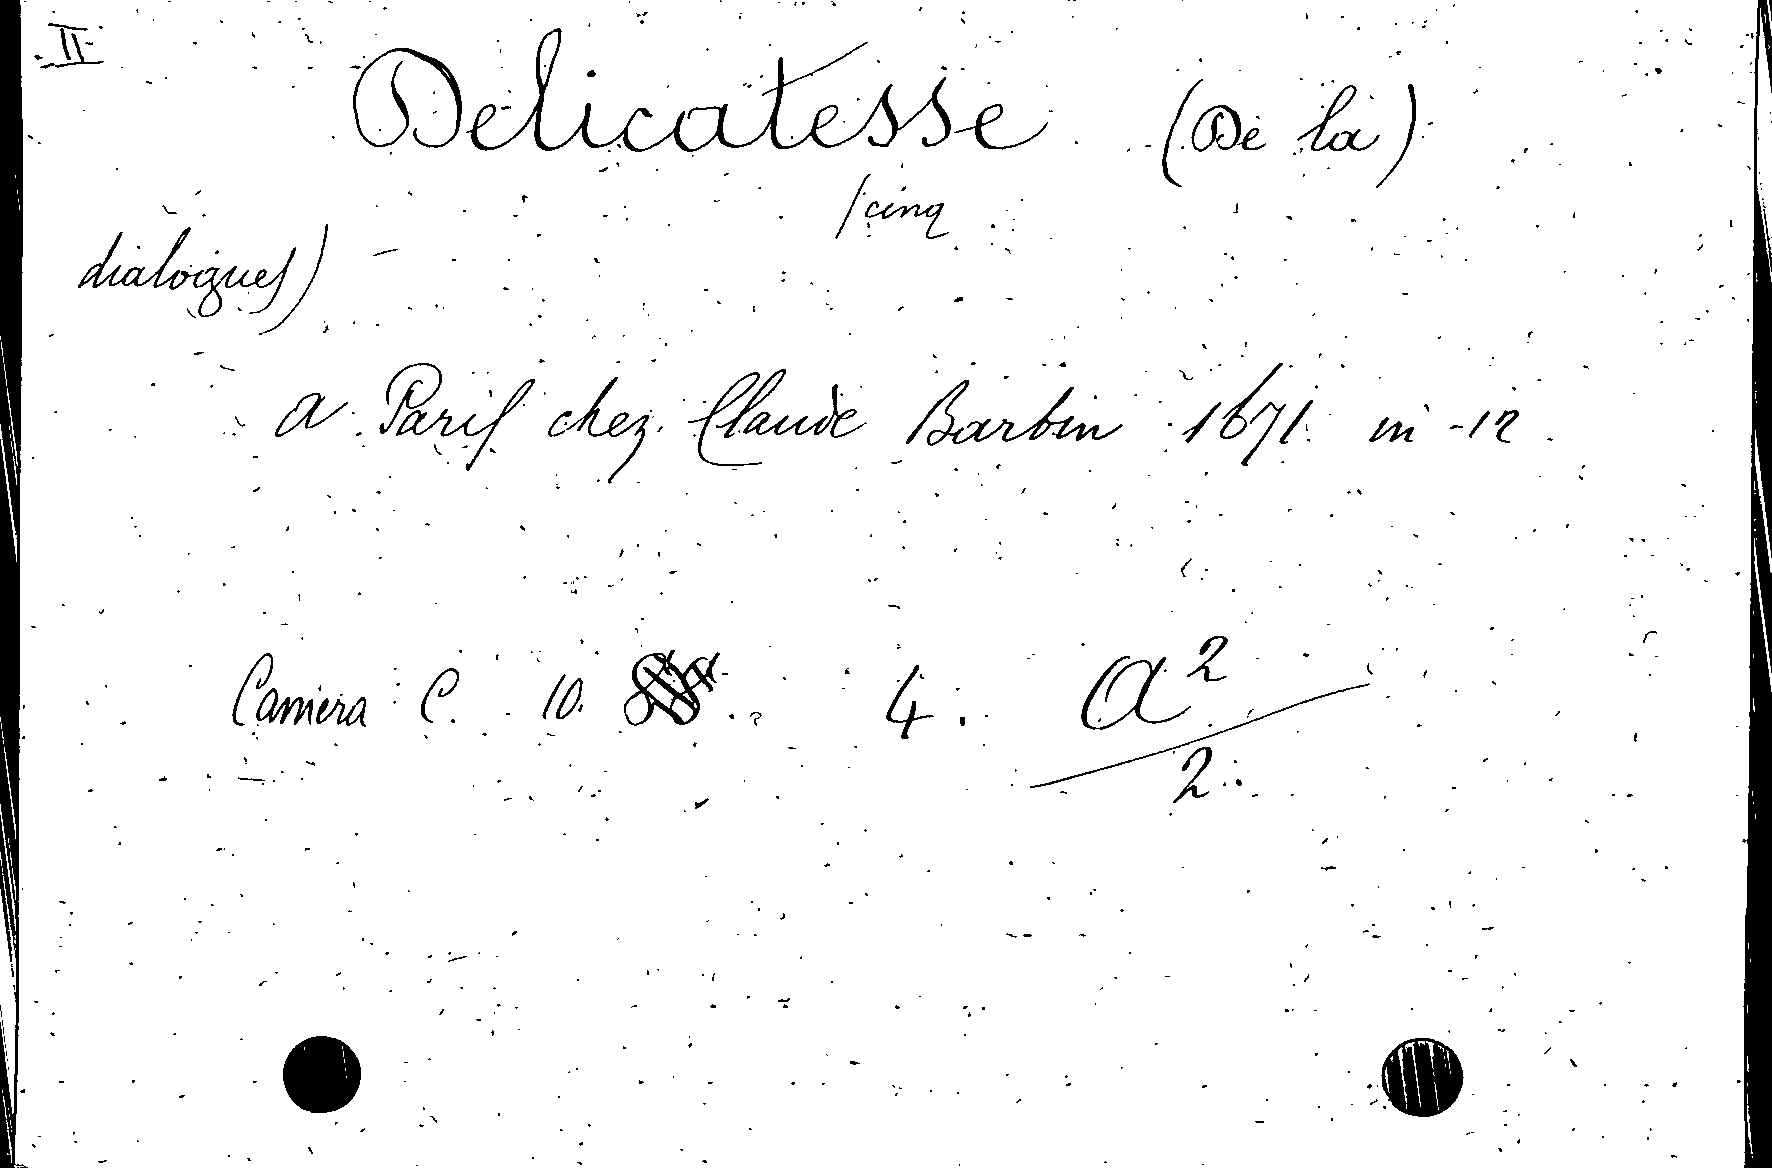 II
Delicatesse (De la)
(cinq
dialogues)
a Paris chez Claude Barbin 1671 in-12
Camera C. 10. 4. a²
2.